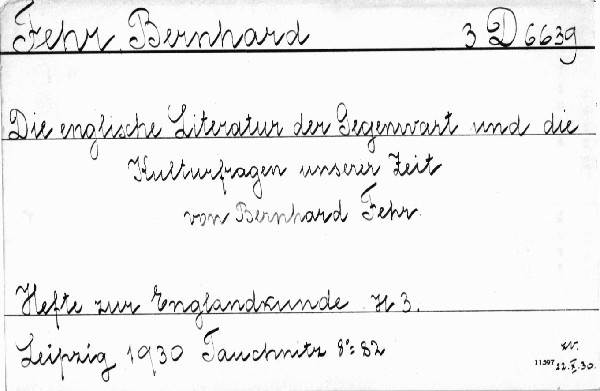 Fehr, Bernhard 3 D 6639
Die englische Literatur der Gegenwart und die
Kulturfragen unserer Zeit
von Bernhard Fehr.
Hefte zur Englandkunde H 3.
Leipzig 1930 Tauchnitz 8°: 82
11597 22.X.30.